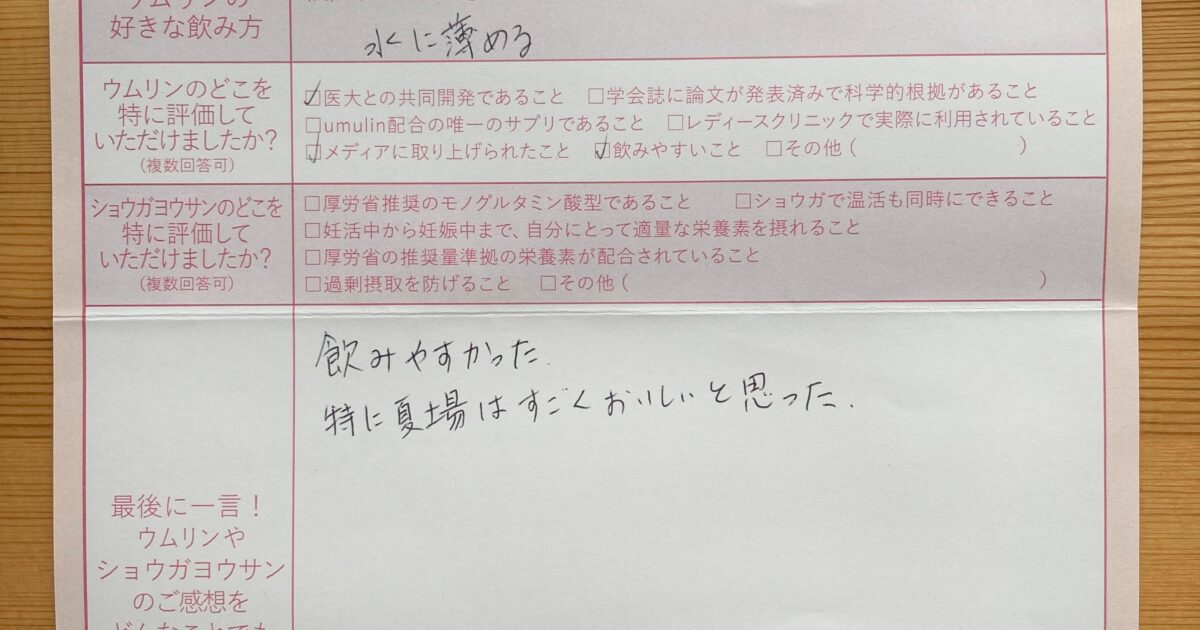 ウムリンの
好きな飲み方
水に薄める
ウムリンのどこを
特に評価して
いただけましたか?
(複数回答可)
☑医大との共同開発であること □学会誌に論文が発表済みで科学的根拠があること
□umulin配合の唯一のサプリであること □レディースクリニックで実際に利用されていること
☑メディアに取り上げられたこと ☑飲みやすいこと □その他 ( )
ショウガヨウサンのどこを
特に評価して
いただけましたか?
(複数回答可)
□厚労省推奨のモノグルタミン酸型であること □ショウガで温活も同時にできること
□妊活中から妊娠中まで、自分にとって適量な栄養素を摂れること
□厚労省の推奨量準拠の栄養素が配合されていること
□過剰摂取を防げること □その他 ( )
飲みやすかった.
特に夏場はすごくおいしいと思った.
最後に一言!
ウムリンや
ショウガヨウサン
のご感想を
どんなことでも